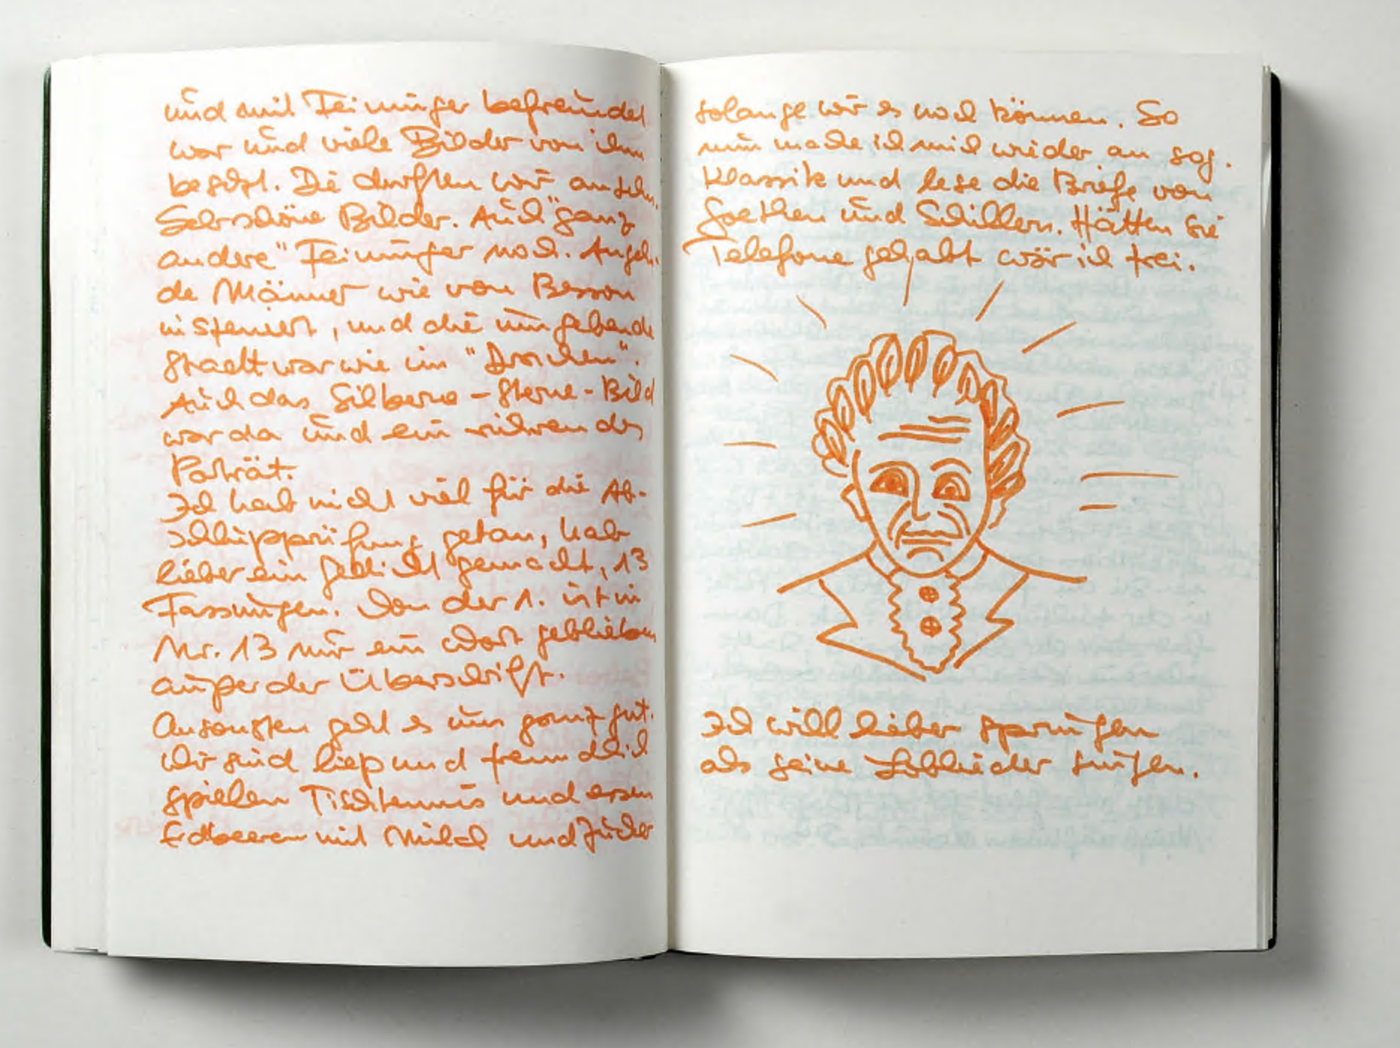 und mit Feininger befreundet
war und viele Bilder von ihm
besitzt. Die durften wir ansehn.
Sehr schöne Bilder. Auch "ganz
andere" Feininger noch. Angeln-
de Männer wie von Besson
inszeniert, und die umgebende
Stadt war wie im "Drachen".
Auch das Silberne-Sterne-Bild
war da und ein
Porträt.
Ich hab nicht viel für die Ab-
schlußprüfung getan, hab
lieber ein Gedicht gemacht, 13
Fassungen. Von der 1. ist in
Nr. 13 nur ein Wort geblieben
außer der Überschrift.
Ansonsten geht es uns ganz gut.
Wir sind liep und freundlich
spielen Tischtennis und essen
Erdbeeren mit Milch und Zucker
solange wir es noch können. So
nun mache ich mich wieder an sog.
Klassik und lese die Briefe von
Goethen und Schillern. Hätten sie
Telefone gehabt wär ich frei.
Ich will lieber springen
als seine Loblieder singen.